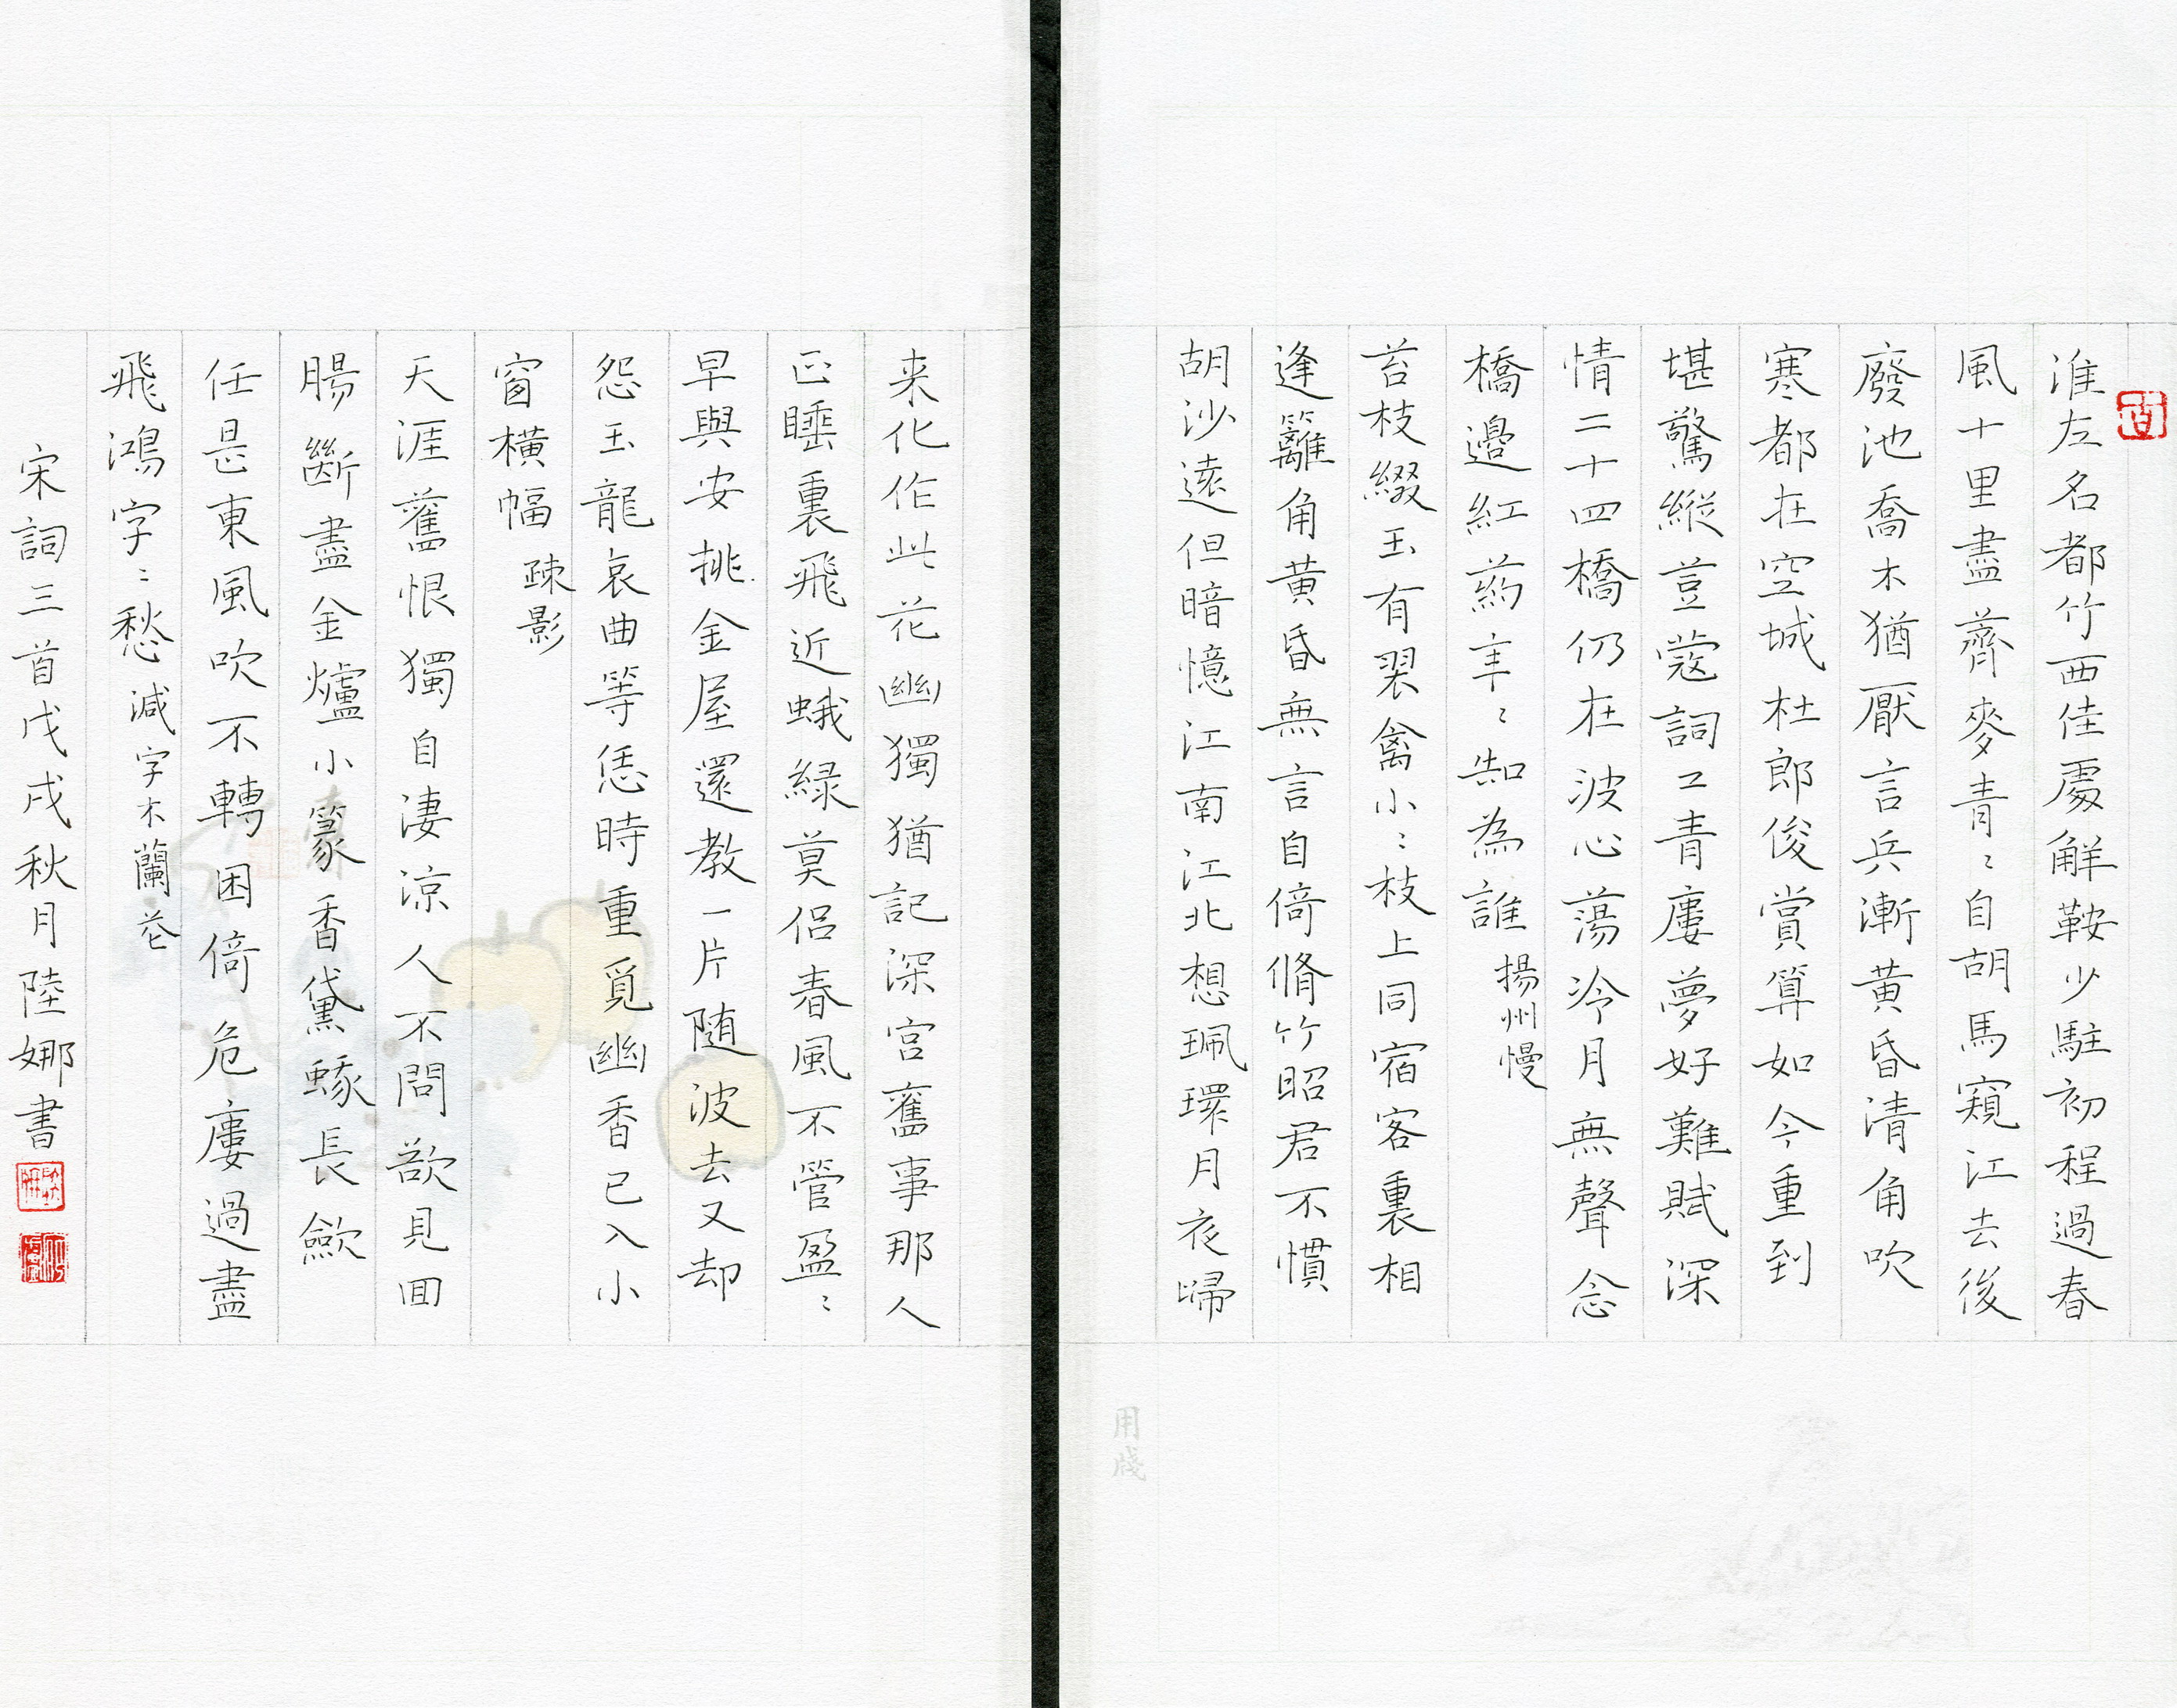 淮左名都竹西佳處解鞍少駐初程過春
風十里盡薺麥青〻自胡馬窺江去後
廢池喬木猶厭言兵漸黃昏清角吹
寒都在空城杜郎俊賞算如今重到
堪驚縱荳蔻詞工青樓夢好難賦深
情二十四橋仍在波心蕩冷月無聲念
橋邊紅葯年〻知為誰 揚州慢
苔枝綴玉有翠禽小〻枝上同宿客裏相
逢籬角黃昏無言自倚脩竹昭君不慣
胡沙遠但暗憶江南江北想珮環月夜歸
来化作此花幽獨猶記深宮舊事那人
正睡裏飛近蛾綠莫侶春風不管盈〻
早與安排金屋還教一片随波去又却
怨玉龍哀曲等恁時重覓幽香已入小
窗橫幅 疎影
天涯舊恨獨自淒涼人不問欲見回
腸斷盡金爐小篆香黛蛾長歛
任是東風吹不轉困倚危樓過盡
飛鴻字〻愁 減字木蘭花
宋詞三首戊戌秋月陸娜書
用牋